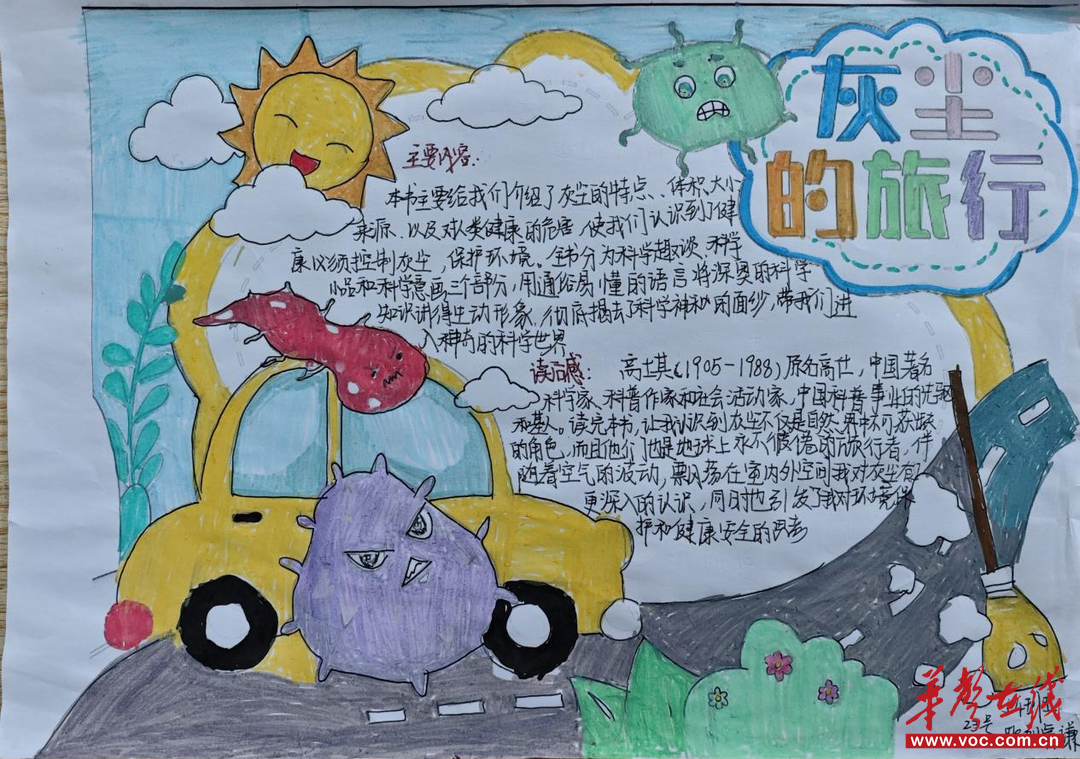 灰尘
的旅行
主要内容:
本书主要给我们介绍了灰尘的特点、体积、大小
来源、以及对人类健康的危害,使我们认识到了健
康必须控制灰尘,保护环境。全书分为科学趣谈、科学
小品和科学漫画三个部分,用通俗易懂的语言将深奥的科学
知识讲得生动形象,彻底揭去了科学神秘的面纱,带我们进
入神奇的科学世界
读后感:高士其(1905-1988)原名高仕,中国著名
科学家、科普作家和社会活动家,中国科普事业的
和基人。读完本书,让我认识到灰尘不仅是自然界中不可或缺
的角色,而且他们也是地球上永不疲倦的旅行者,伴
随着空气的波动,飘荡在室内外空间我对灰尘有了
更深入的认识,同时也引发了我对环境保
护和健康安全的思考
23号
谦
华声在线
www.voc.com.cn